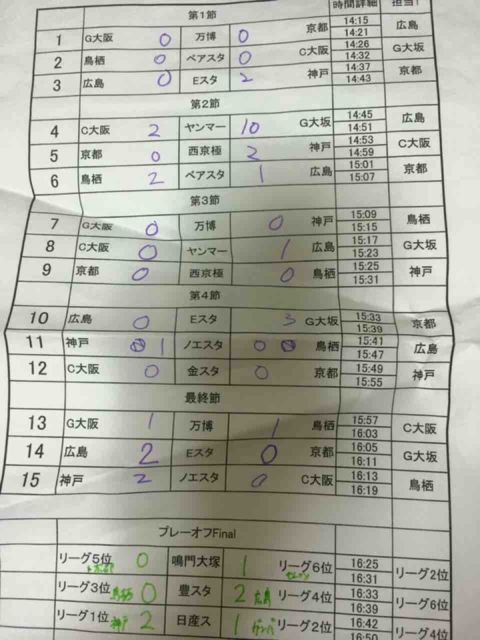 第1節 時間詳細 担当!
1 G大阪 0 万博 0 京都 14:15 14:21 広島
2 鳥栖 0 ベアスタ 0 C大阪 14:26 14:32 G大坂
3 広島 0 Eスタ 2 神戸 14:37 14:43 京都
第2節
4 C大阪 2 ヤンマー 10 G大坂 14:45 14:51 広島
5 京都 0 西京極 2 神戸 14:53 14:59 C大阪
6 鳥栖 2 ベアスタ 1 広島 15:01 15:07 京都
第3節
7 G大阪 0 万博 0 神戸 15:09 15:15 鳥栖
8 C大阪 0 ヤンマー 1 広島 15:17 15:23 G大坂
9 京都 0 西京極 0 鳥栖 15:25 15:31 神戸
第4節
10 広島 0 Eスタ 3 G大坂 15:33 15:39 京都
11 神戸 1 ノエスタ 0 鳥栖 15:41 15:47 広島
12 C大阪 0 金スタ 0 京都 15:49 15:55 神戸
最終節
13 G大阪 1 万博 1 鳥栖 15:57 16:03 C大阪
14 広島 2 Eスタ 0 京都 16:05 16:11 G大坂
15 神戸 2 ノエスタ 0 C大阪 16:13 16:19 鳥栖
プレーオフFinal
リーグ5位 0 鳴門大塚 1 リーグ6位 16:25 16:31 リーグ2位
リーグ3位 鳥栖 0 豊スタ 2 広島 リーグ4位 16:33 16:39 リーグ6位
リーグ1位 神戸 2 日産ス 1 ガンバ リーグ2位 16:42 リーグ4位